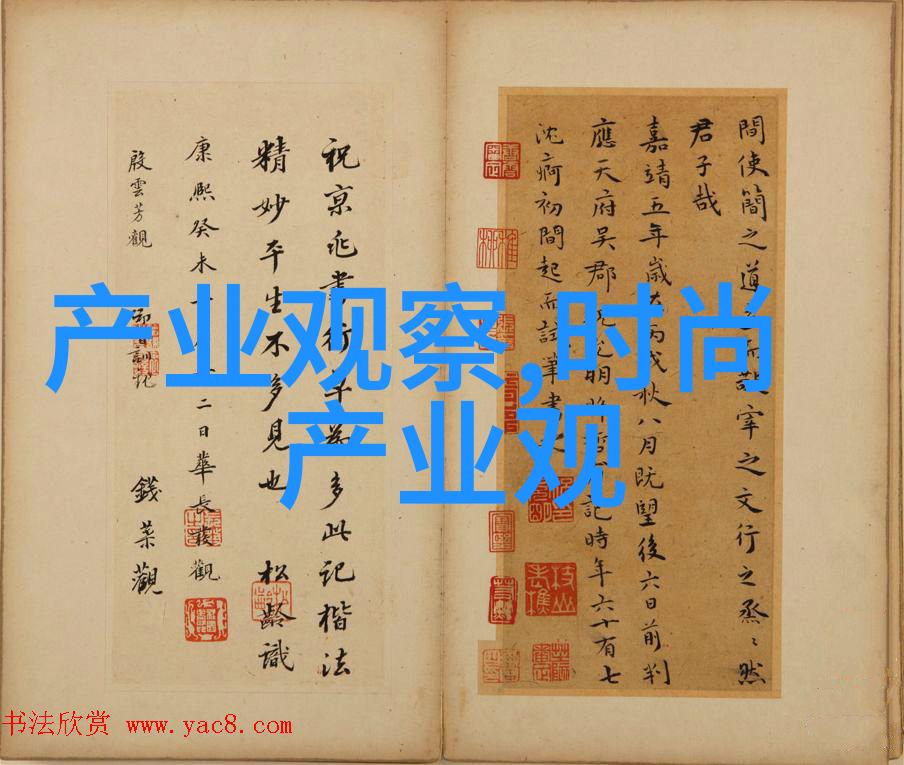 間使簡之道
宰之文行之烝〻然
君子哉
嘉靖五年歲
丙戌秋八月既望後六日前判
應天府吳郡
明
記時年六十有七
沈痾初間起而試筆書
祝京兆書行草為多此記楷法
精妙平生不多見也
松齡識
康熙癸未
二日華長發觀
殷雲芳觀
錢菜觀
产业观察,时尚
产业观
书法欣赏 www.yac8.com